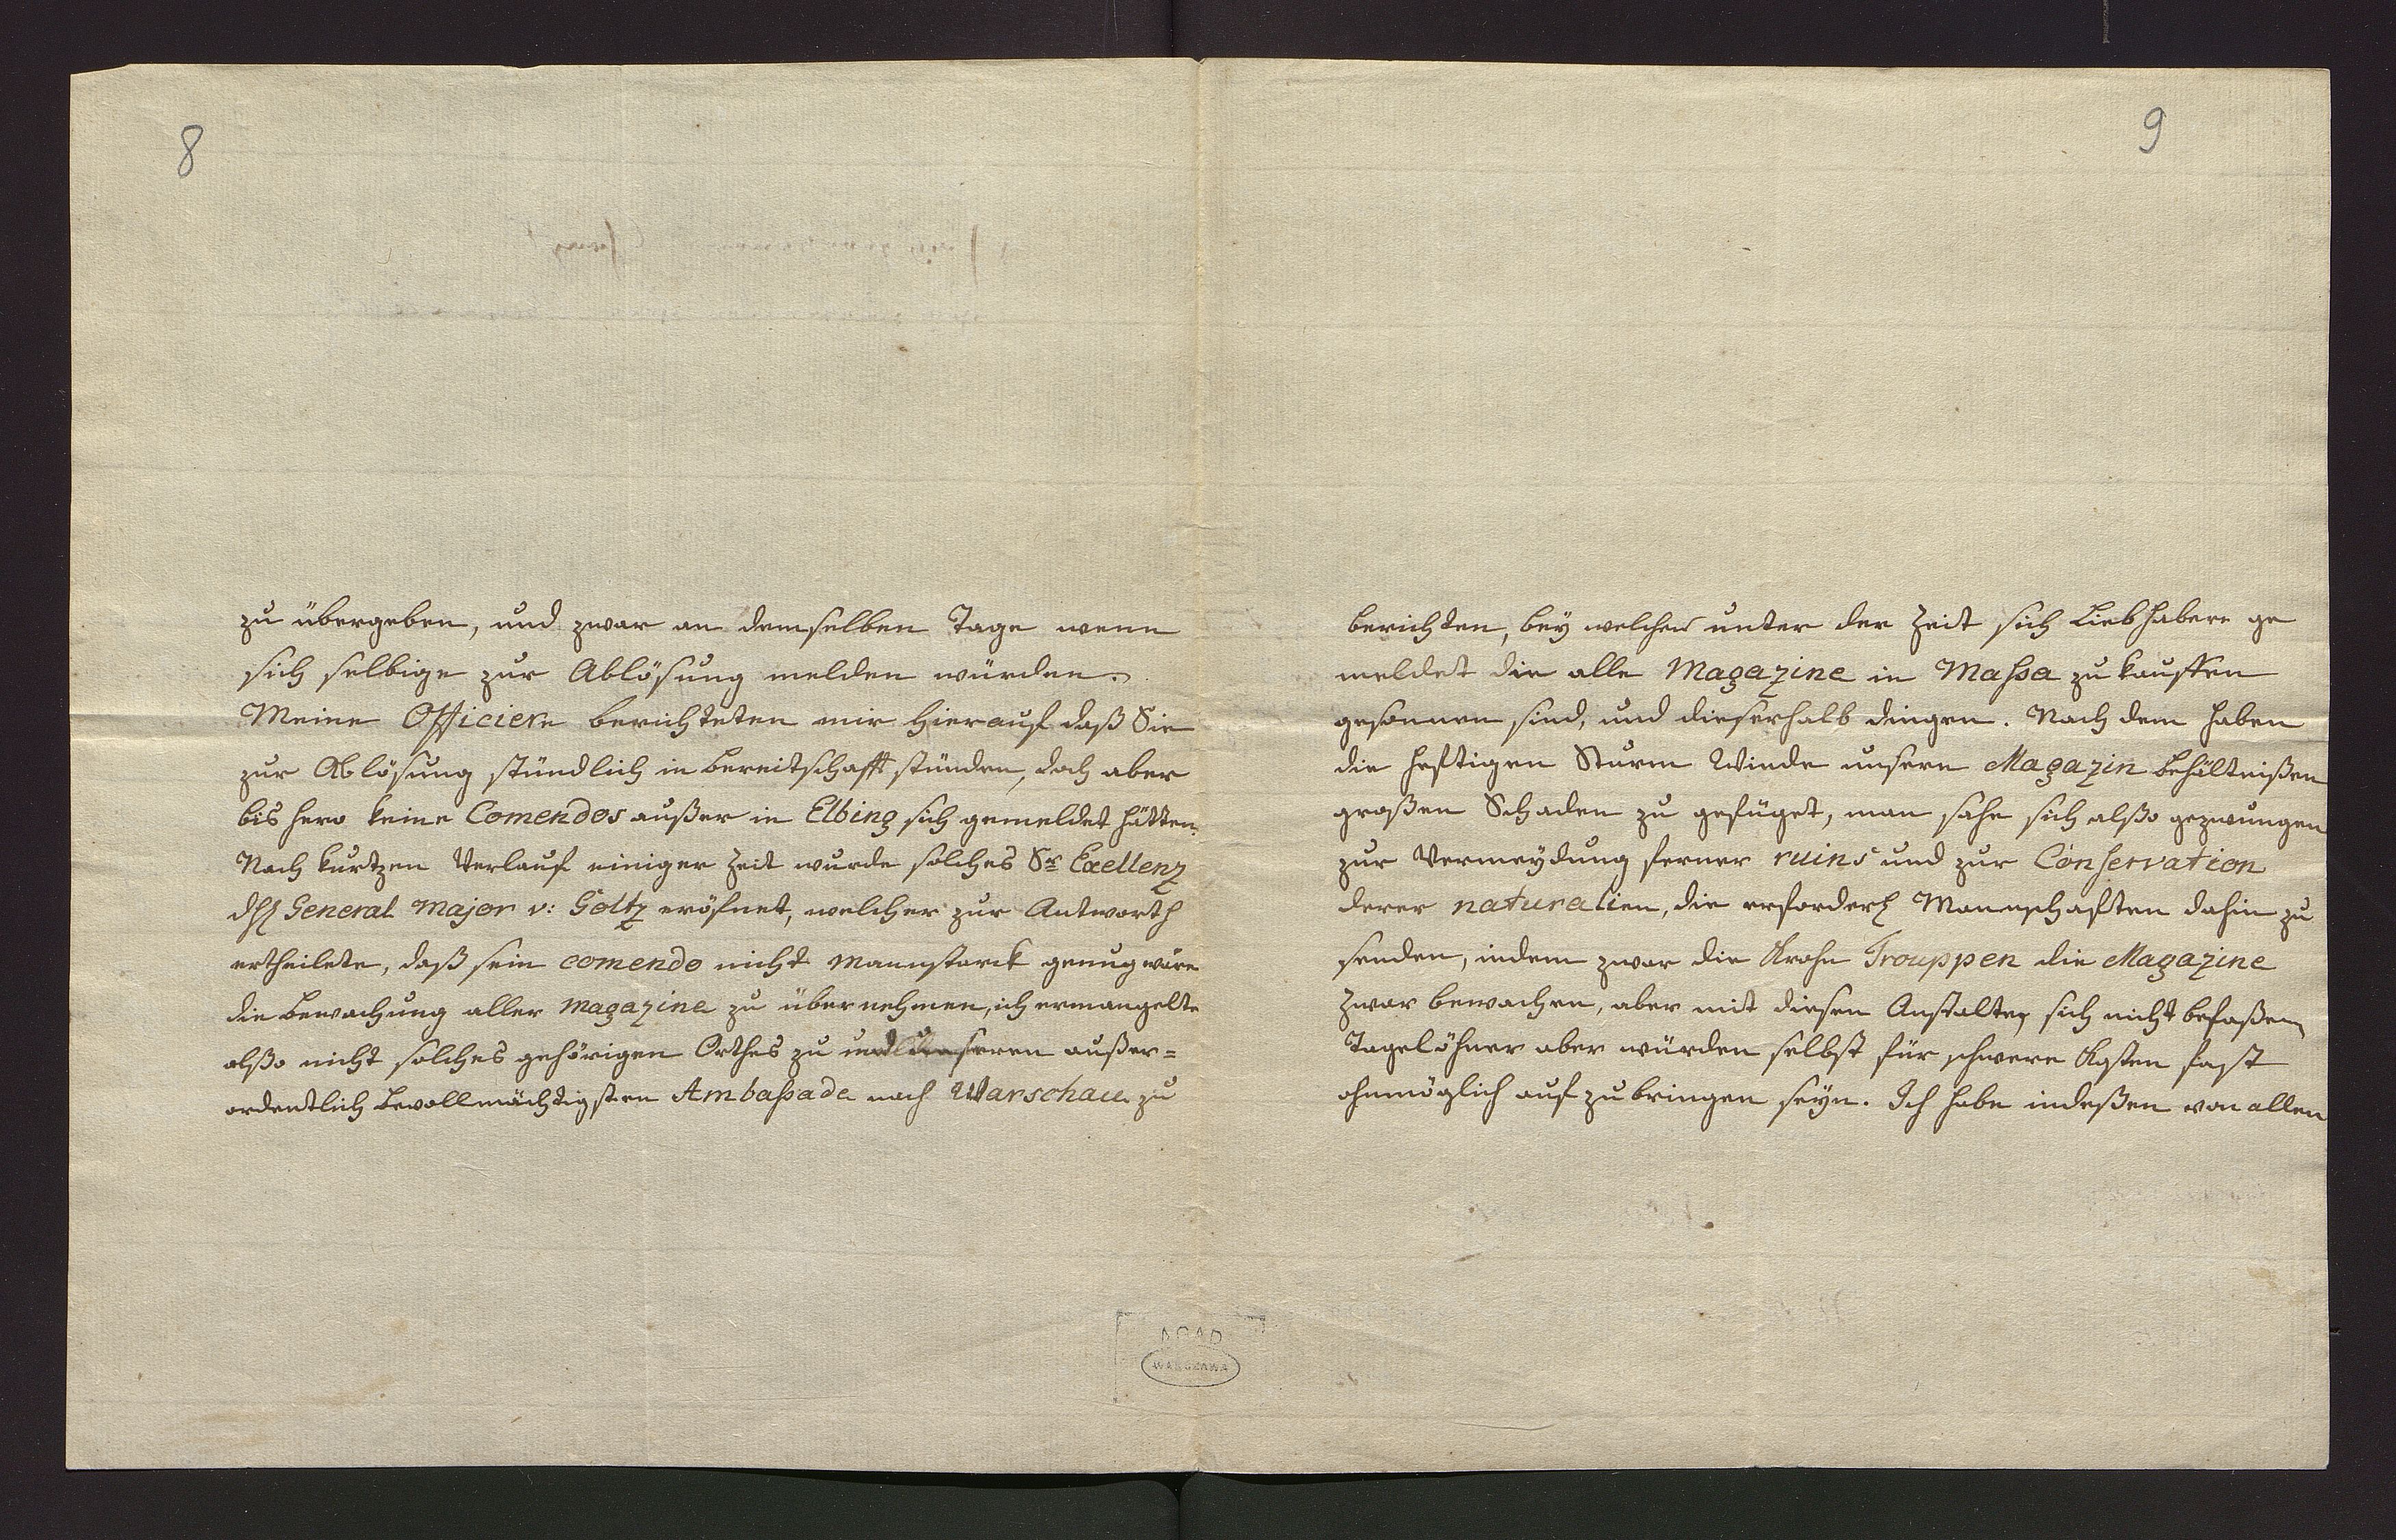 8
zu übergeben, und zwar an demselben Tage wenn
sich selbige zur Ablösung melden würden.
Meine Officiere berichteten mir hierauf daß Sie
zur Ablösung stündlich in bereitschafft stünden, doch aber
bis hero keine Comendos außer in Elbing sich gemeldet hätten.
Nach kurtzen Verlauf einiger Zeit wurde solches Sr Exellenz
General Major v: Goltz eröfnet, welcher zur Antworth
ertheilete, daß sein comendo nicht Mannstarck genug wäre
die bewachung aller magazine zu übernehmen, ich ermangelte
alßo nicht solches gehörigen Orthes zu und unseren außer=
ordentlich bevollmächtigsten Ambaßade nach Warschau zu
9
berichten, bey welcher unter der Zeit sich Liebhabere ge
meldet die alle Magazine in Maßa zu kauffen
gesonnen sind, und dieserhalb dingen. Nach dem haben
die heftigen Sturm Winde unsern Magazin behältnißen
großen Schaden zu gefüget, man sahe sich alßo gezwungen
zur Vermeydung ferner ruins und zur Conservation
derer naturalien, die erforderl Mannschaften dahin zu
senden, indem zwar die Krohn Trouppen die Magazine
zwar bewachen, aber mit diesen Anstalten sich nicht befaßen
Tagelöhner aber würden selbst für schwere Kosten fast
ohnmöglich auf zu bringen seyn. Ich habe indeßen von allen
AGAD
WARSZAWA